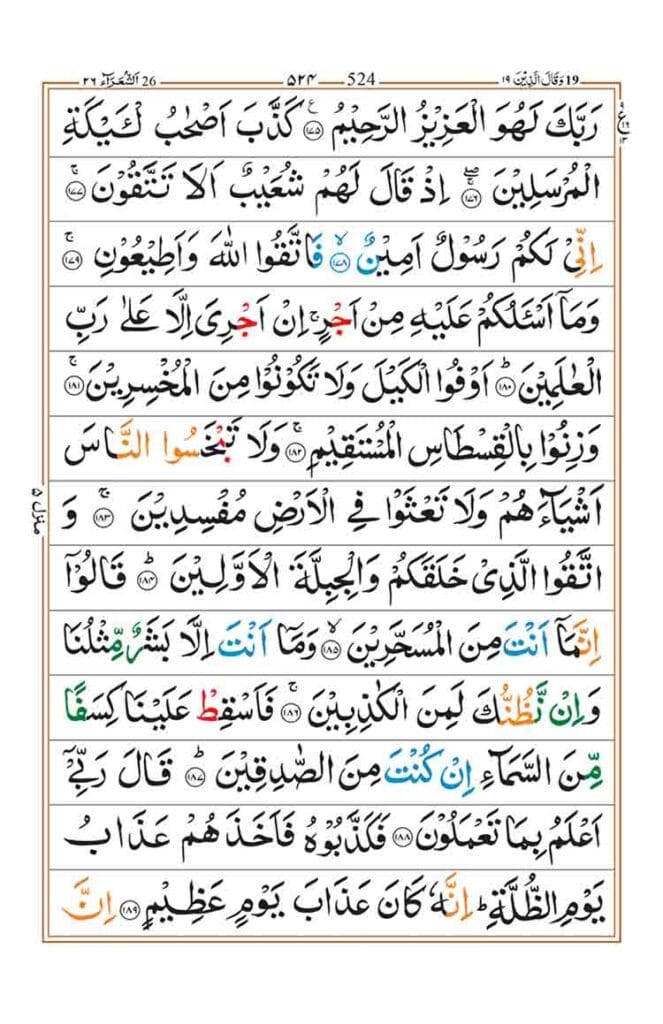 19 وَقَالَ الَّذِيْنَ ١٩ 524 ۵۲۴ 26 اَلشُّعَرَآء ٢٦
رَبَّكَ لَهُوَ الْعَزِيْزُ الرَّحِيْمُ ﴿١٧٥﴾ كَذَّبَ اَصْحٰبُ لْـَٔيْكَةِ
الْمُرْسَلِيْنَ ﴿١٧٦﴾ اِذْ قَالَ لَهُمْ شُعَيْبٌ اَلَا تَتَّقُوْنَ ﴿١٧٧﴾
اِنِّيْ لَكُمْ رَسُوْلٌ اَمِيْنٌ ﴿١٧٨﴾ فَاتَّقُوا اللّٰهَ وَاَطِيْعُوْنِ ﴿١٧٩﴾
وَمَاۤ اَسْـَٔلُكُمْ عَلَيْهِ مِنْ اَجْرٍ ۚ اِنْ اَجْرِيَ اِلَّا عَلٰى رَبِّ
الْعٰلَمِيْنَ ﴿١٨٠﴾ اَوْفُوا الْكَيْلَ وَلَا تَكُوْنُوْا مِنَ الْمُخْسِرِيْنَ ﴿١٨١﴾
وَزِنُوْا بِالْقِسْطَاسِ الْمُسْتَقِيْمِ ﴿١٨٢﴾ وَلَا تَبْخَسُوا النَّاسَ
اَشْيَآءَهُمْ وَلَا تَعْثَوْا فِي الْاَرْضِ مُفْسِدِيْنَ ﴿١٨٣﴾ وَ
اتَّقُوا الَّذِيْ خَلَقَكُمْ وَالْجِبِلَّةَ الْاَوَّلِيْنَ ﴿١٨٤﴾ قَالُوْۤا
اِنَّمَاۤ اَنْتَ مِنَ الْمُسَحَّرِيْنَ ﴿١٨٥﴾ وَمَاۤ اَنْتَ اِلَّا بَشَرٌ مِّثْلُنَا
وَاِنْ نَّظُنُّكَ لَمِنَ الْكٰذِبِيْنَ ﴿١٨٦﴾ فَاَسْقِطْ عَلَيْنَا كِسَفًا
مِّنَ السَّمَآءِ اِنْ كُنْتَ مِنَ الصّٰدِقِيْنَ ﴿١٨٧﴾ قَالَ رَبِّيْۤ
اَعْلَمُ بِمَا تَعْمَلُوْنَ ﴿١٨٨﴾ فَكَذَّبُوْهُ فَاَخَذَهُمْ عَذَابُ
يَوْمِ الظُّلَّةِ ؕ اِنَّهٗ كَانَ عَذَابَ يَوْمٍ عَظِيْمٍ ﴿١٨٩﴾ اِنَّ
منزل ۵